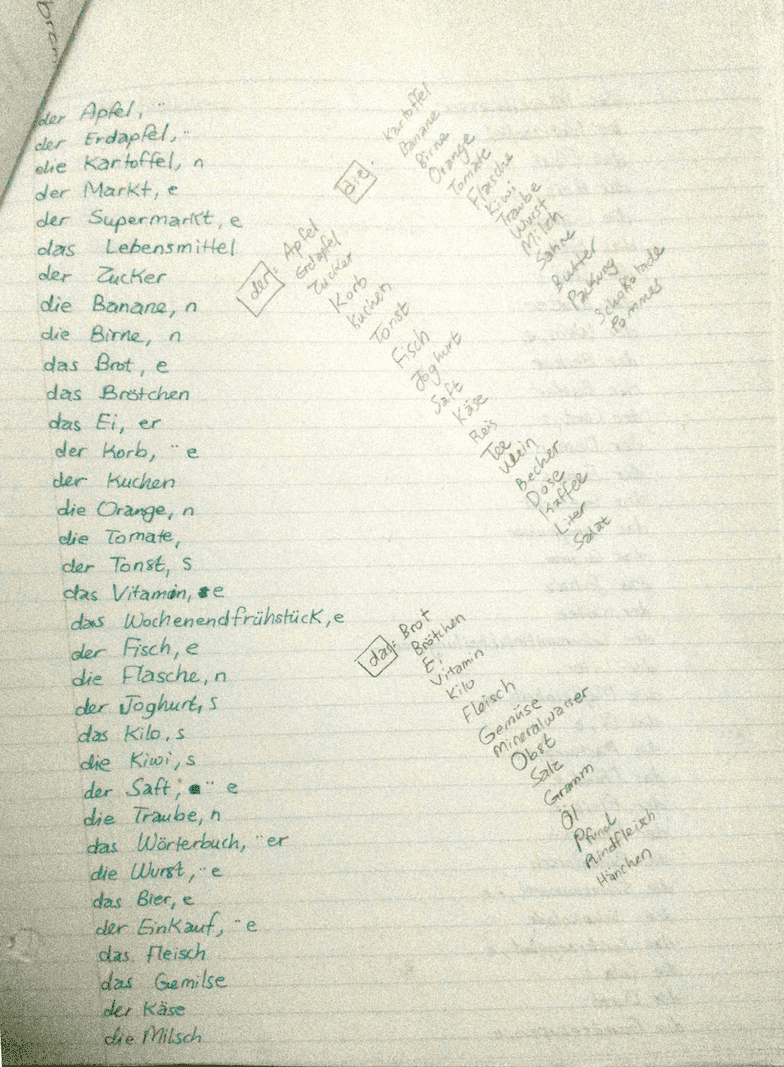 der Apfel, ¨
der Erdapfel, ¨
die Kartoffel, n
der Markt, e
der Supermarkt, e
das Lebensmittel
der Zucker
die Banane, n
die Birne, n
das Brot, e
das Brötchen
das Ei, er
der Korb, ¨e
der Kuchen
die Orange, n
die Tomate,
der Tonst, s
das Vitamin, e
das Wochenendfrühstück, e
der Fisch, e
die Flasche, n
der Joghurt, s
das Kilo, s
die Kiwi, s
der Saft, ¨e
die Traube, n
das Wörterbuch, ¨er
die Wurst, ¨e
das Bier, e
der EinKauf, ¨e
das Fleisch
das Gemilse
der Käse
die Milsch
die:
Kartoffel
Banane
Birne
Orange
Tomate
Flasche
Kiwi
Traube
Wurst
Milch
Sahne
Butter
Packung
Schokolade
Pommes
der:
Apfel
Erdapfel
Zucker
Korb
Kuchen
Tonst
Fisch
Joghurt
Saft
Käse
Reis
Tee
Wein
Becher
Dose
Kaffee
Liter
Salat
das:
Brot
Brötchen
Ei
Vitamin
Kilo
Fleisch
Gemüse
Mineralwasser
Obst
Salz
Gramm
Öl
Pfund
Rindfleisch
Hänchen